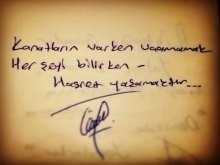 Kanatların varken uçamamak
Her şeyi bilirken -
Hasret yaşamaktır...